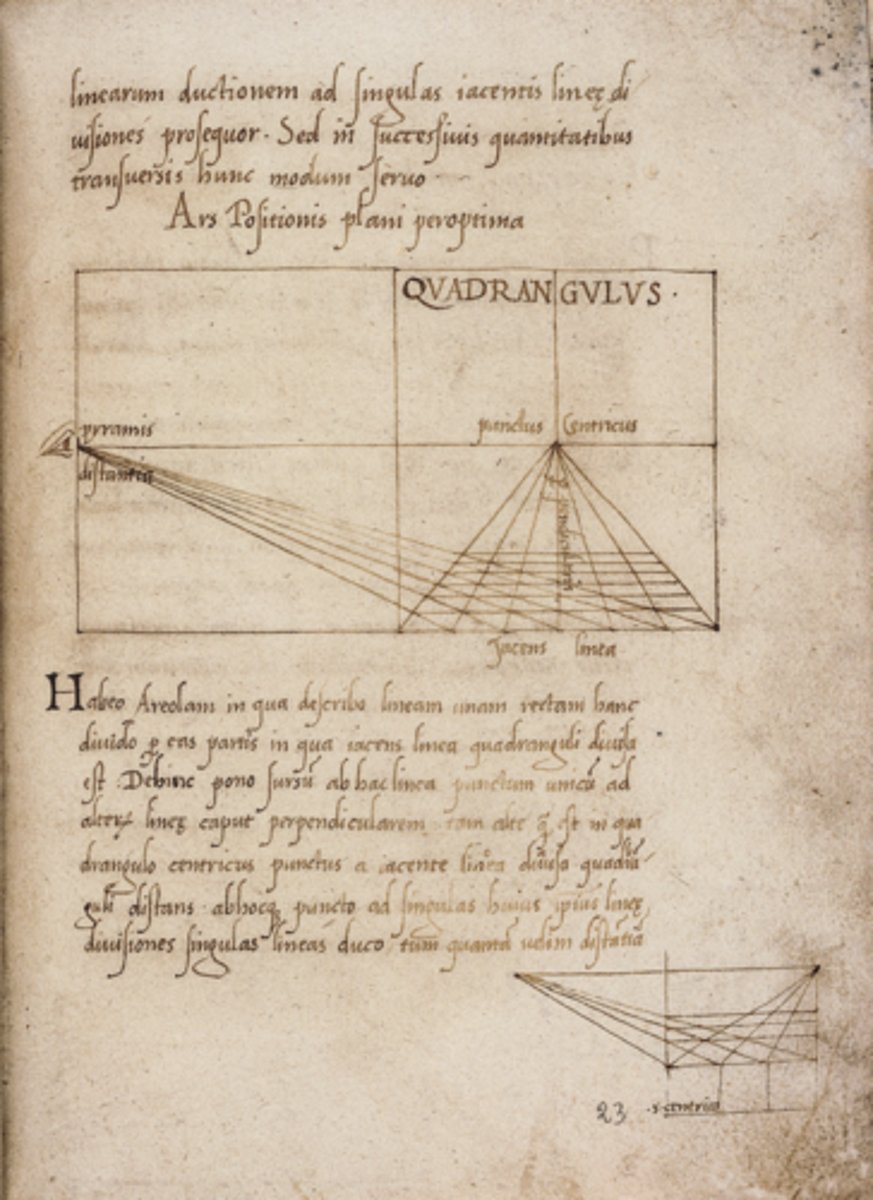 linearum ductionem ad singulas iacentis lineę di
uisiones prosequor. Sed in̄ successiuis quantitatibus
transuersis hunc modum seruo
Ars Positionis plani peroptima
QVADRANGVLVS
pyramis
punctus Centricus
distantia
Jacens linea
Habeo Areolam in qua describo lineam unam rectam hanc
diuido ꝑ eas partis in qua iacens linea quadranguli diuisa
est. Dehinc pono sursū ab hac linea punctum unicū ad
alterꝰ lineę caput perpendicularem tam alte q̄ est in qua
drangulo centricus punctus a iacente linea diuisa quadrā
guli distans abhocq; puncto ad singulas huius ipsius lineę
diuisiones singulas lineas duco tum quantā uelim distātiā
23
.s. centrica